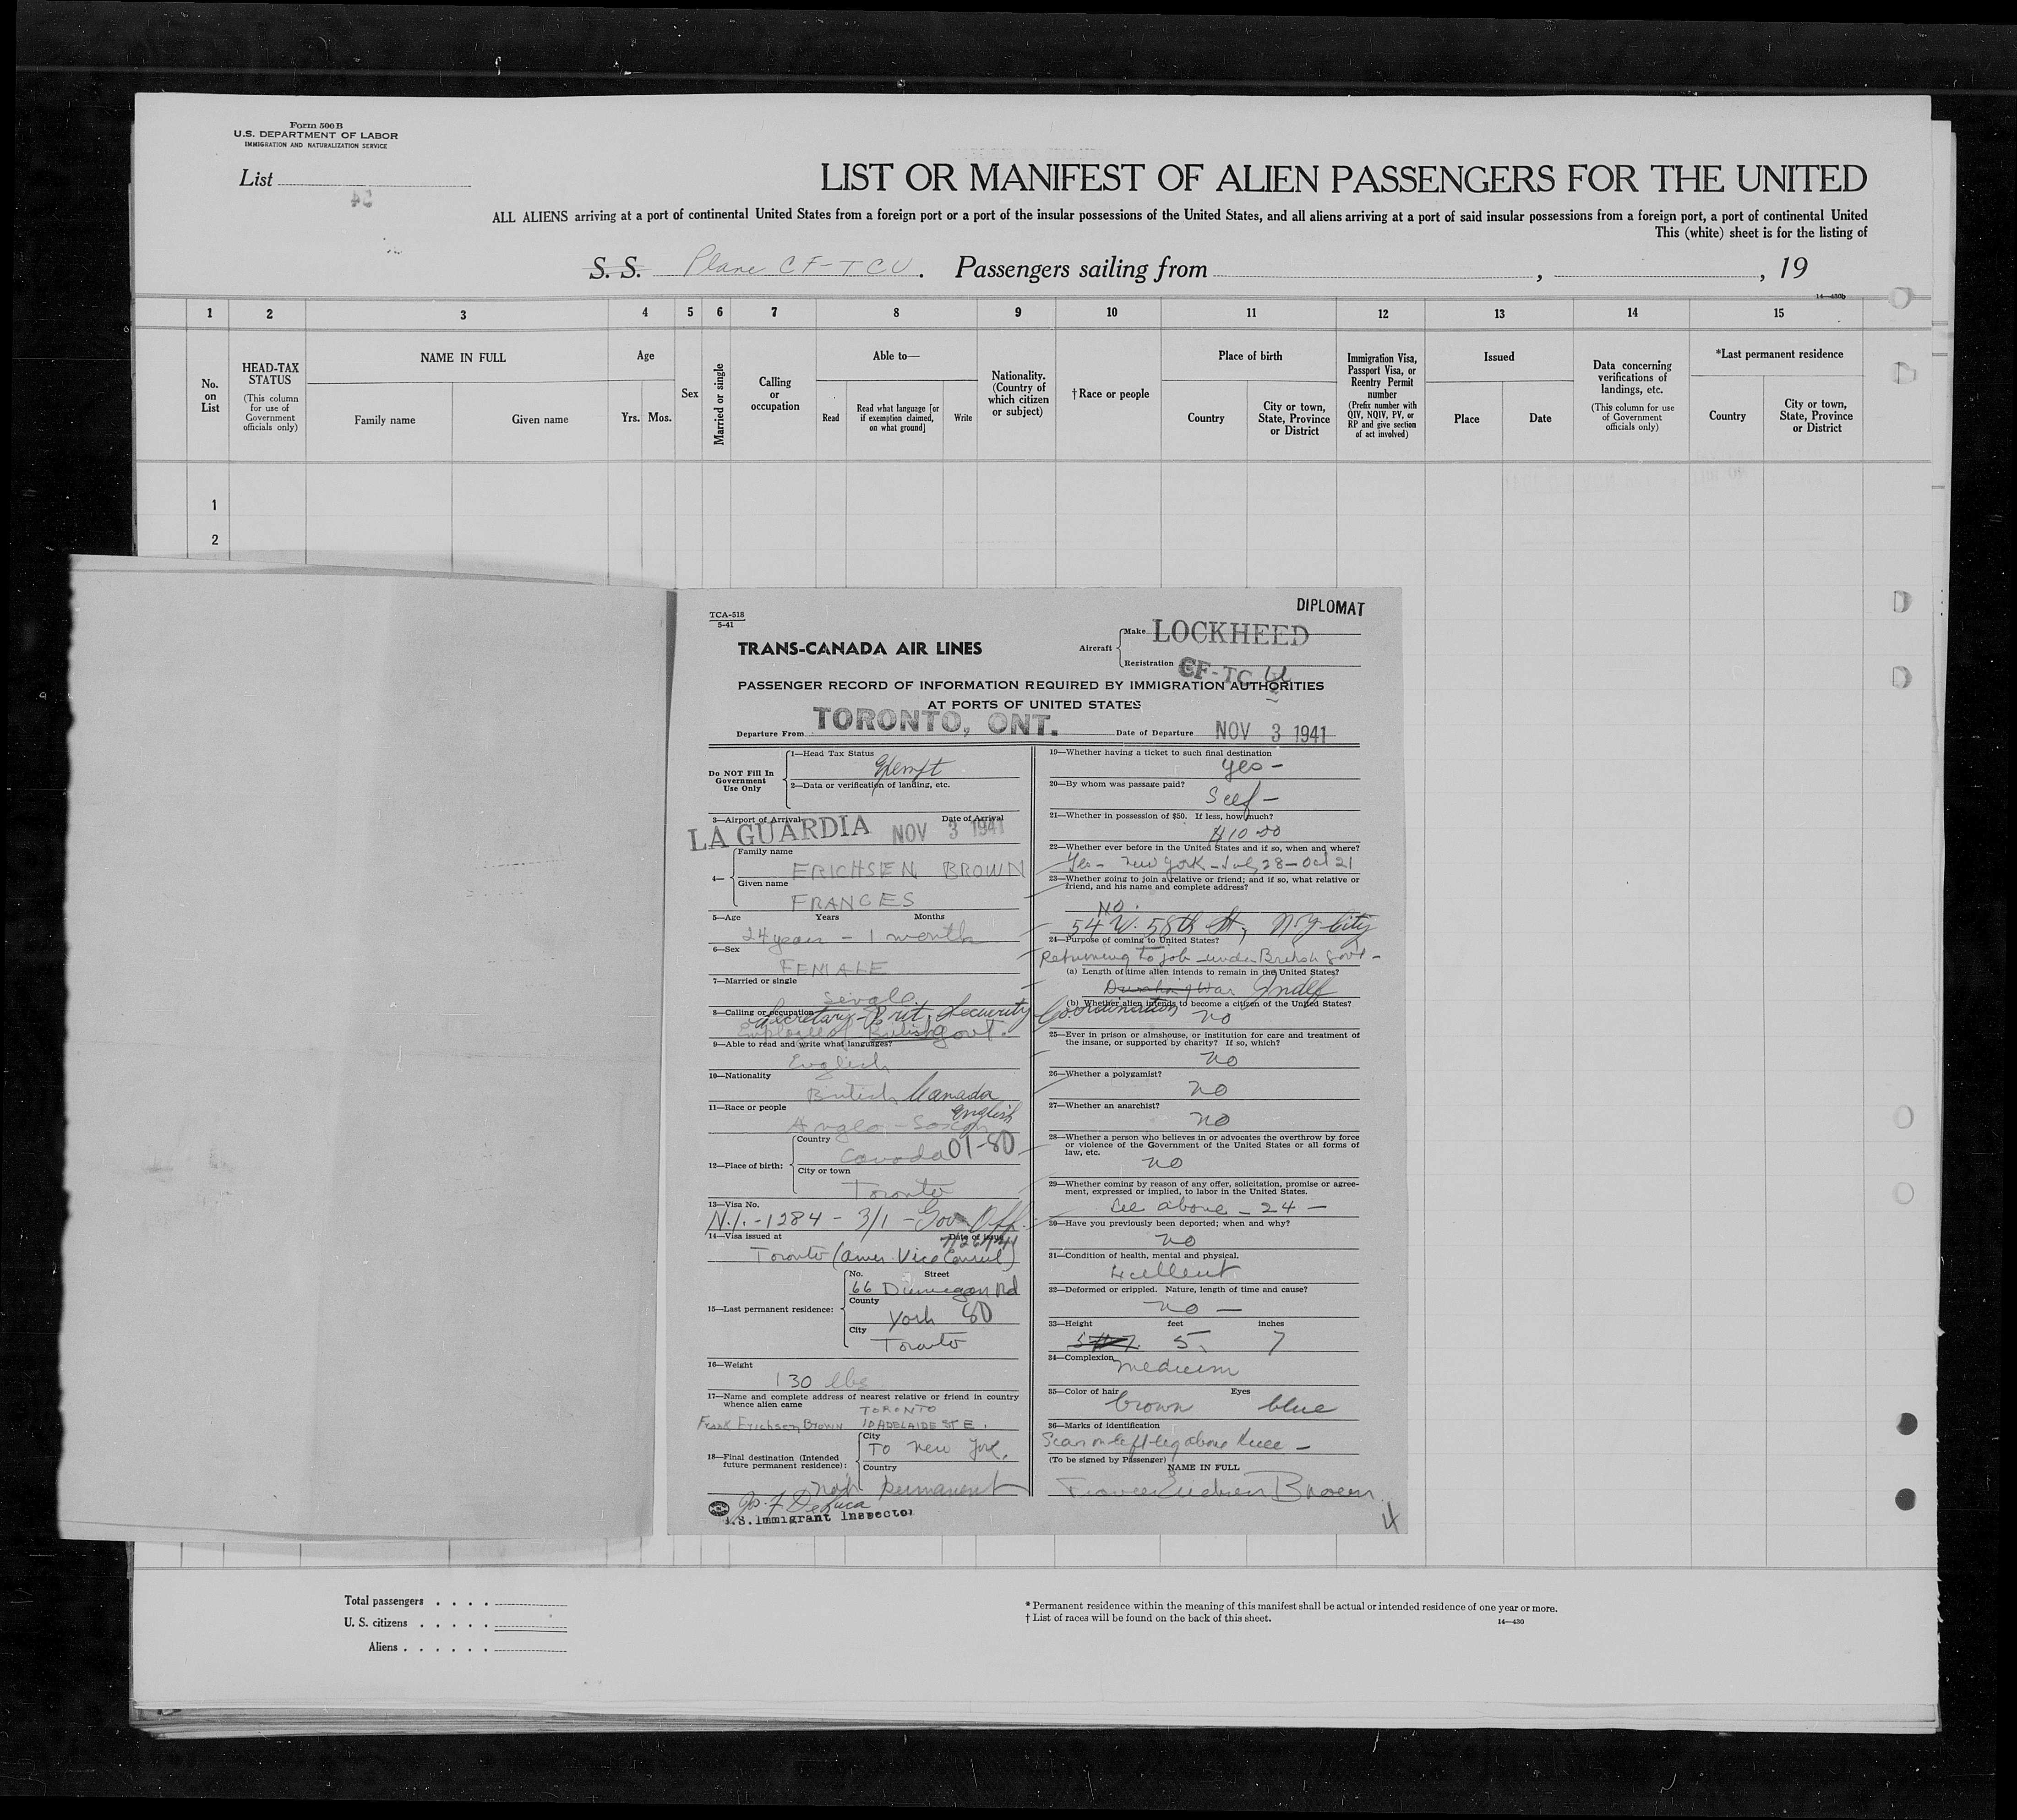 Form 500 B
U.S. DEPARTMENT OF LABOR
IMMIGRATION AND NATURALIZATION SERVICE
List
LIST OR MANIFEST OF ALIEN PASSENGERS FOR THE UNITED
ALL ALIENS arriving at a port of continental United States from a foreign port or a port of the insular possessions of the United States, and all aliens arriving at a port of said insular possessions from a foreign port, a port of continental United
This (white) sheet is for the listing of
S. S. Plane CF-TCU. Passengers sailing from , , 19
14—430b
1 2 3 4 5 6 7 8 9 10 11 12 13 14 15
No. on List
HEAD-TAX STATUS
(This column for use of Government officials only)
NAME IN FULL
Family name
Given name
Age
Yrs. Mos.
Sex
Married or single
Calling or occupation
Able to—
Read
Read what language [or if exemption claimed, on what ground]
Write
Nationality. (Country of which citizen or subject)
†Race or people
Place of birth
Country
City or town, State, Province or District
Immigration Visa, Passport Visa, or Reentry Permit number
(Prefix number with QIV, NQIV, PV, or RP and give section of act involved)
Issued
Place
Date
Data concerning verifications of landings, etc.
(This column for use of Government officials only)
*Last permanent residence
Country
City or town, State, Province or District
1
2
DIPLOMAT
TCA-518
5-41
TRANS-CANADA AIR LINES
Aircraft
Make LOCKHEED
Registration CF-TCU
PASSENGER RECORD OF INFORMATION REQUIRED BY IMMIGRATION AUTHORITIES
AT PORTS OF UNITED STATES
Departure From TORONTO, ONT. Date of Departure NOV 3 1941
Do NOT Fill In Government Use Only
1—Head Tax Status
Exempt
2—Data or verification of landing, etc.
3—Airport of Arrival Date of Arrival
LA GUARDIA NOV 3 1941
4—
Family name
ERICHSEN BROWN
Given name
FRANCES
5—Age Years Months
24 years - 1 month
6—Sex
FEMALE
7—Married or single
Single
8—Calling or occupation
Secretary - Brit. Security Coordination
Employee of British Govt.
9—Able to read and write what languages?
English
10—Nationality
British Canada
11—Race or people
English
Anglo-Saxon
12—Place of birth:
Country
Canada 01-80
City or town
Toronto
13—Visa No.
N.I.-1284 - 3/1 - Gov Off.
14—Visa issued at Date of issue
Toronto (Amer. Vice Consul)
15—Last permanent residence:
No. Street
66 Dunvegan Rd
County
York 80
City
Toronto
16—Weight
130 lbs
17—Name and complete address of nearest relative or friend in country whence alien came
TORONTO
Frank Erichsen Brown 10 ADELAIDE ST E.
18—Final destination (Intended future permanent residence):
City
To New York.
Country
not permanent
Jos. F. DeLuca
U.S. Immigrant Inspector
19—Whether having a ticket to such final destination
yes -
20—By whom was passage paid?
Self -
21—Whether in possession of $50. If less, how much?
$10.00
22—Whether ever before in the United States and if so, when and where?
Yes - New York - July 28 - Oct 21
23—Whether going to join a relative or friend; and if so, what relative or friend, and his name and complete address?
NO.
54 W. 58th St, N Y City
24—Purpose of coming to United States?
Returning to job under British Govt -
(a) Length of time alien intends to remain in the United States?
During War Indef
(b) Whether alien intends to become a citizen of the United States?
no
25—Ever in prison or almshouse, or institution for care and treatment of the insane, or supported by charity? If so, which?
no
26—Whether a polygamist?
no
27—Whether an anarchist?
no
28—Whether a person who believes in or advocates the overthrow by force or violence of the Government of the United States or all forms of law, etc.
no
29—Whether coming by reason of any offer, solicitation, promise or agreement, expressed or implied, to labor in the United States.
See above - 24 -
30—Have you previously been deported; when and why?
no
31—Condition of health, mental and physical.
Excellent
32—Deformed or crippled. Nature, length of time and cause?
no -
33—Height feet inches
5 7
34—Complexion
medium
35—Color of hair Eyes
brown blue
36—Marks of identification
Scar on left leg above knee -
(To be signed by Passenger)
NAME IN FULL
Frances Erichsen Brown
4
Total passengers
U. S. citizens
Aliens
* Permanent residence within the meaning of this manifest shall be actual or intended residence of one year or more.
† List of races will be found on the back of this sheet.
14—430